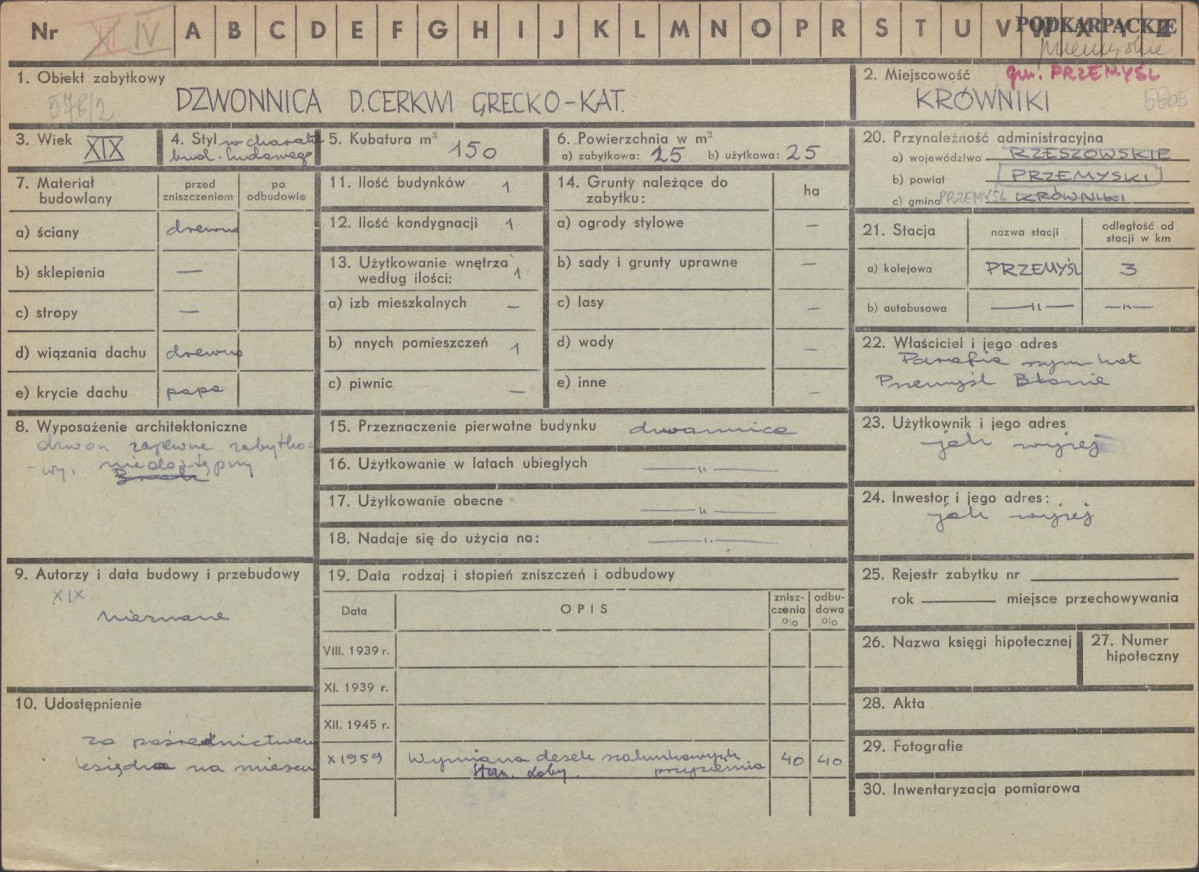 Nr XI IV A B C D E F G H I J K L M N O P R S T U V W X Y Z
PODKARPACKIE
przemyskie
1. Obiekt zabytkowy
576/2
DZWONNICA D.CERKWI GRECKO-KAT.
2. Miejscowość gm. PRZEMYŚL
KRÓWNIKI
3. Wiek XIX
4. Styl w charakt.
bud. ludowego
5. Kubatura m³ 150
6. Powierzchnia w m²
a) zabytkowa: 25 b) użytkowa: 25
7. Materiał budowlany
przed zniszczeniem
po odbudowie
a) ściany drewno
b) sklepienia —
c) stropy —
d) wiązania dachu drewno
e) krycie dachu papa
8. Wyposażenie architektoniczne
dzwon zapewne zabytko-
-wy. niedostępny
9. Autorzy i data budowy i przebudowy
XIX
nieznane
10. Udostępnienie
za pośrednictwem
księdza na miejscu
11. Ilość budynków 1
12. Ilość kondygnacji 1
13. Użytkowanie wnętrza
według ilości: 1
a) izb mieszkalnych —
b) nnych pomieszczeń 1
c) piwnic —
14. Grunty należące do
zabytku:
ha
a) ogrody stylowe —
b) sady i grunty uprawne —
c) lasy —
d) wody —
e) inne —
15. Przeznaczenie pierwotne budynku dzwonnica
16. Użytkowanie w latach ubiegłych —"—
17. Użytkowanie obecne —"—
18. Nadaje się do użycia na: —"—
19. Data rodzaj i stopień zniszczeń i odbudowy
Data
OPIS
znisz-
czenia
%
odbu-
dowa
%
VIII. 1939 r.
XI. 1939 r.
XII. 1945 r.
X 1959 Wymiana desek szalunkowych 40 40
Stan. dobry. przyziemia
20. Przynależność administracyjna
a) województwo RZESZOWSKIE
b) powiat PRZEMYSKI
c) gmina PRZEMYŚL KRÓWNIKI
21. Stacja
nazwa stacji
odległość od
stacji w km
a) kolejowa PRZEMYŚL 3
b) autobusowa —"— —"—
22. Właściciel i jego adres
Parafia rzym kat
Przemyśl Błonie
23. Użytkownik i jego adres
jak wyżej
24. Inwestor i jego adres:
jak wyżej
25. Rejestr zabytku nr
rok miejsce przechowywania
26. Nazwa księgi hipotecznej
27. Numer
hipoteczny
28. Akta
29. Fotografie
30. Inwentaryzacja pomiarowa